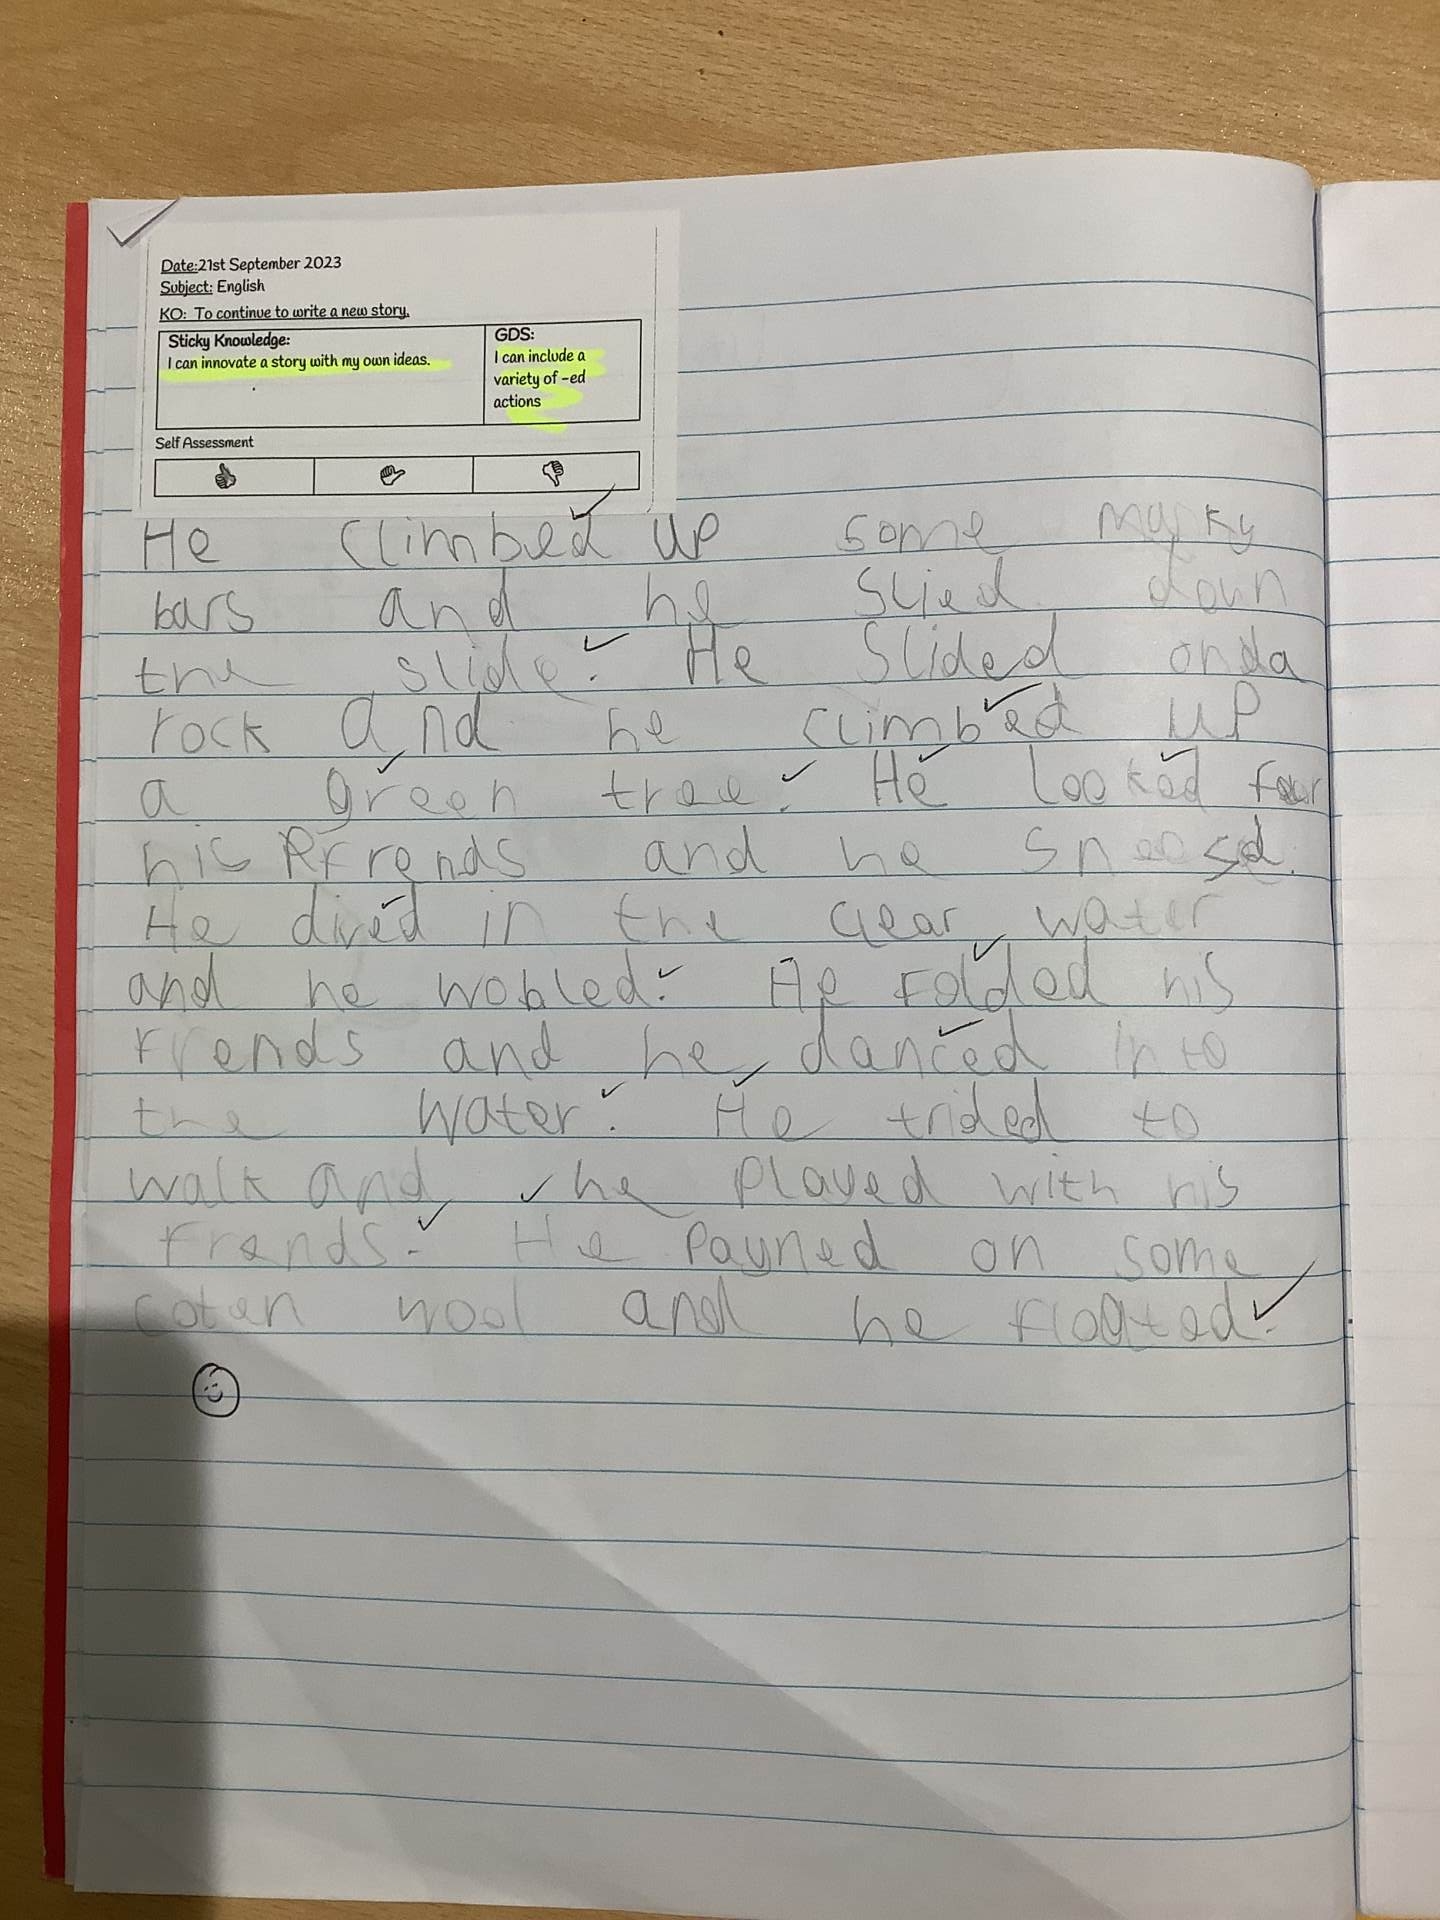 Date:21st September 2023
Subject: English
KO: To continue to write a new story.
Sticky Knowledge:
I can innovate a story with my own ideas.
GDS:
I can include a
variety of -ed
actions
Self Assessment
He climbed up some
bars and he slied down
the slide. He Slided onda
rock and he climbed up
a green tree. He looked
his frends and he
He dived in the clear water
and he wobled. He Folded his
frends and he danced into
the water. He trided to
walk and he played with his
frends. He payned on some
coten wool and he floated.